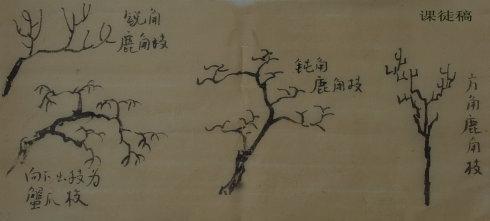 课徒稿
锐角
鹿角枝
钝角
鹿角枝
方角鹿角枝
向下出枝为
蟹爪枝